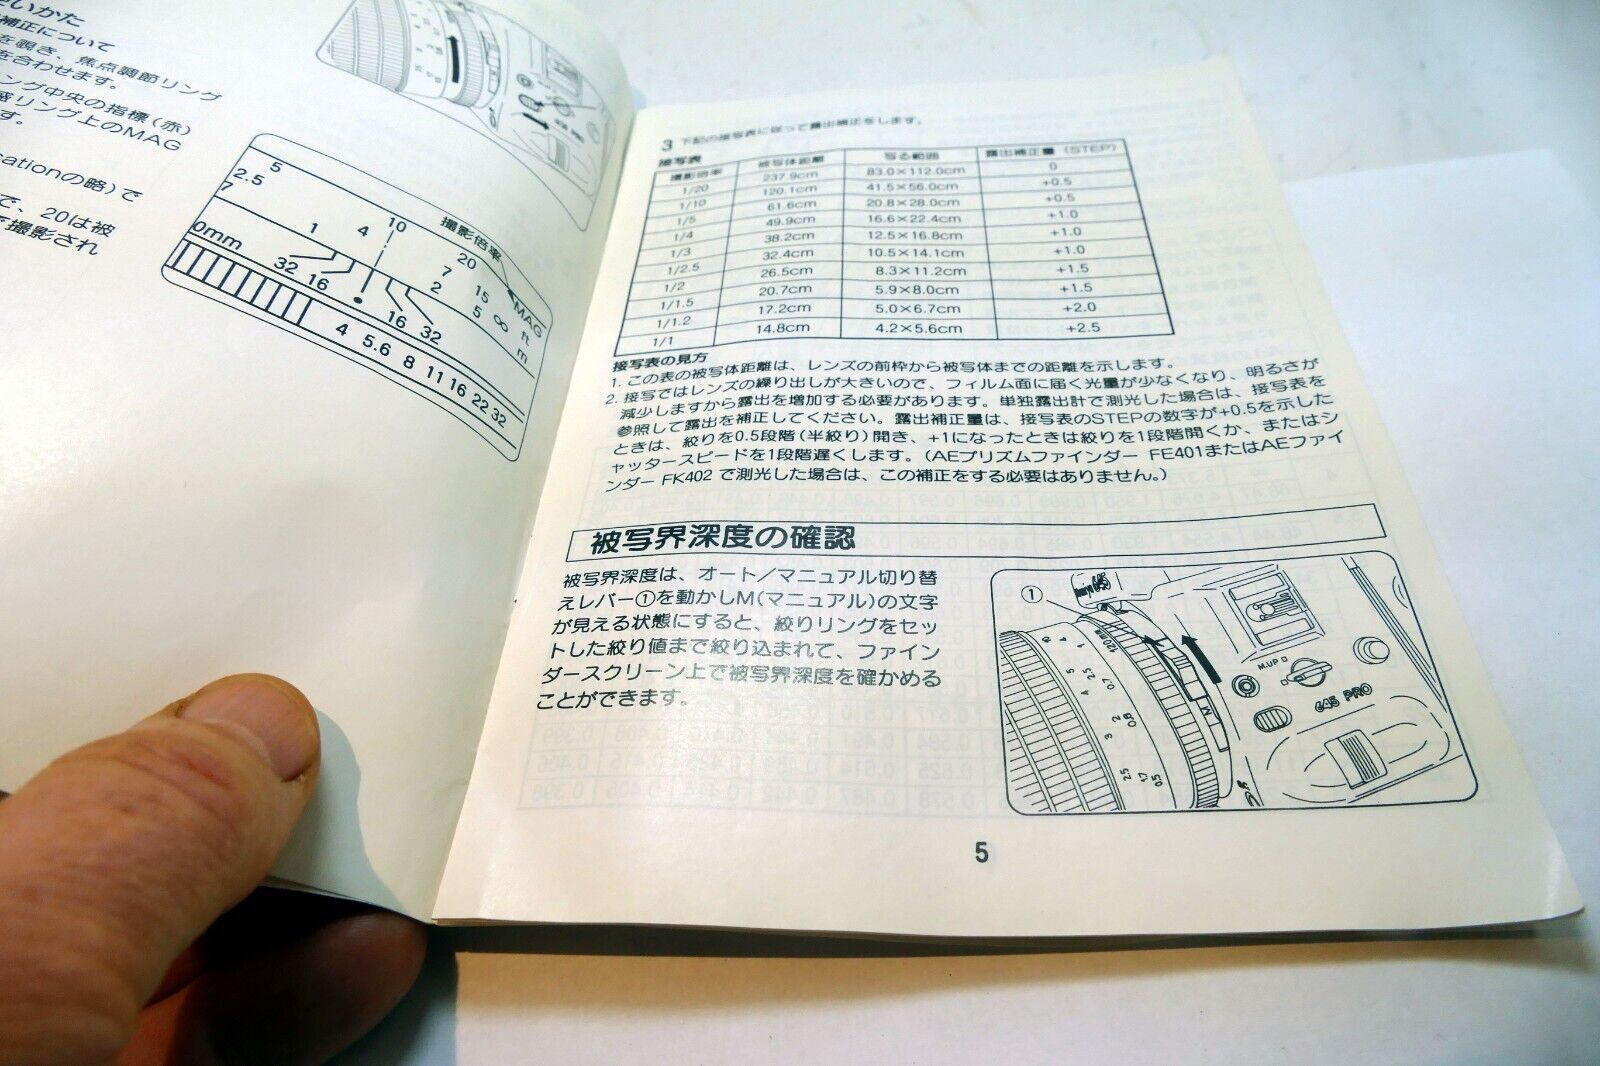 いかた
補正について
を覗き、焦点調節リング
を合わせます。
ング中央の指標(赤)
リング上のMAG
す。
cationの略)で
で、20は被
で撮影され
5
2.5
7
10
撮影倍率
1 4
20
MAG
0mm
7 15 ∞ ft
2 5 m
32 16 • 16 32
4 5.6 8 11 16 22 32
3 下記の接写表に従って露出補正をします。
接写表
撮影倍率 被写体距離 写る範囲 露出補正量(STEP)
1/20 237.9cm 83.0×112.0cm 0
1/10 120.1cm 41.5×56.0cm +0.5
1/5 61.6cm 20.8×28.0cm +0.5
1/4 49.9cm 16.6×22.4cm +1.0
1/3 38.2cm 12.5×16.8cm +1.0
1/2.5 32.4cm 10.5×14.1cm +1.0
1/2 26.5cm 8.3×11.2cm +1.5
1/1.5 20.7cm 5.9×8.0cm +1.5
1/1.2 17.2cm 5.0×6.7cm +2.0
1/1 14.8cm 4.2×5.6cm +2.5
接写表の見方
1. この表の被写体距離は、レンズの前枠から被写体までの距離を示します。
2. 接写ではレンズの繰り出しが大きいので、フィルム面に届く光量が少なくなり、明るさが
減少しますから露出を増加する必要があります。単独露出計で測光した場合は、接写表を
参照して露出を補正してください。露出補正量は、接写表のSTEPの数字が+0.5を示した
ときは、絞りを0.5段階(半絞り)開き、+1になったときは絞りを1段階開くか、またはシ
ャッタースピードを1段階遅くします。(AEプリズムファインダー FE401またはAEファイ
ンダー FK402 で測光した場合は、この補正をする必要はありません。)
被写界深度の確認
被写界深度は、オート/マニュアル切り替
えレバー①を動かしM(マニュアル)の文字
が見える状態にすると、絞りリングをセッ
トした絞り値まで絞り込まれて、ファイン
ダースクリーン上で被写界深度を確かめる
ことができます。
①
120mm
M
M.UP
645 PRO
5